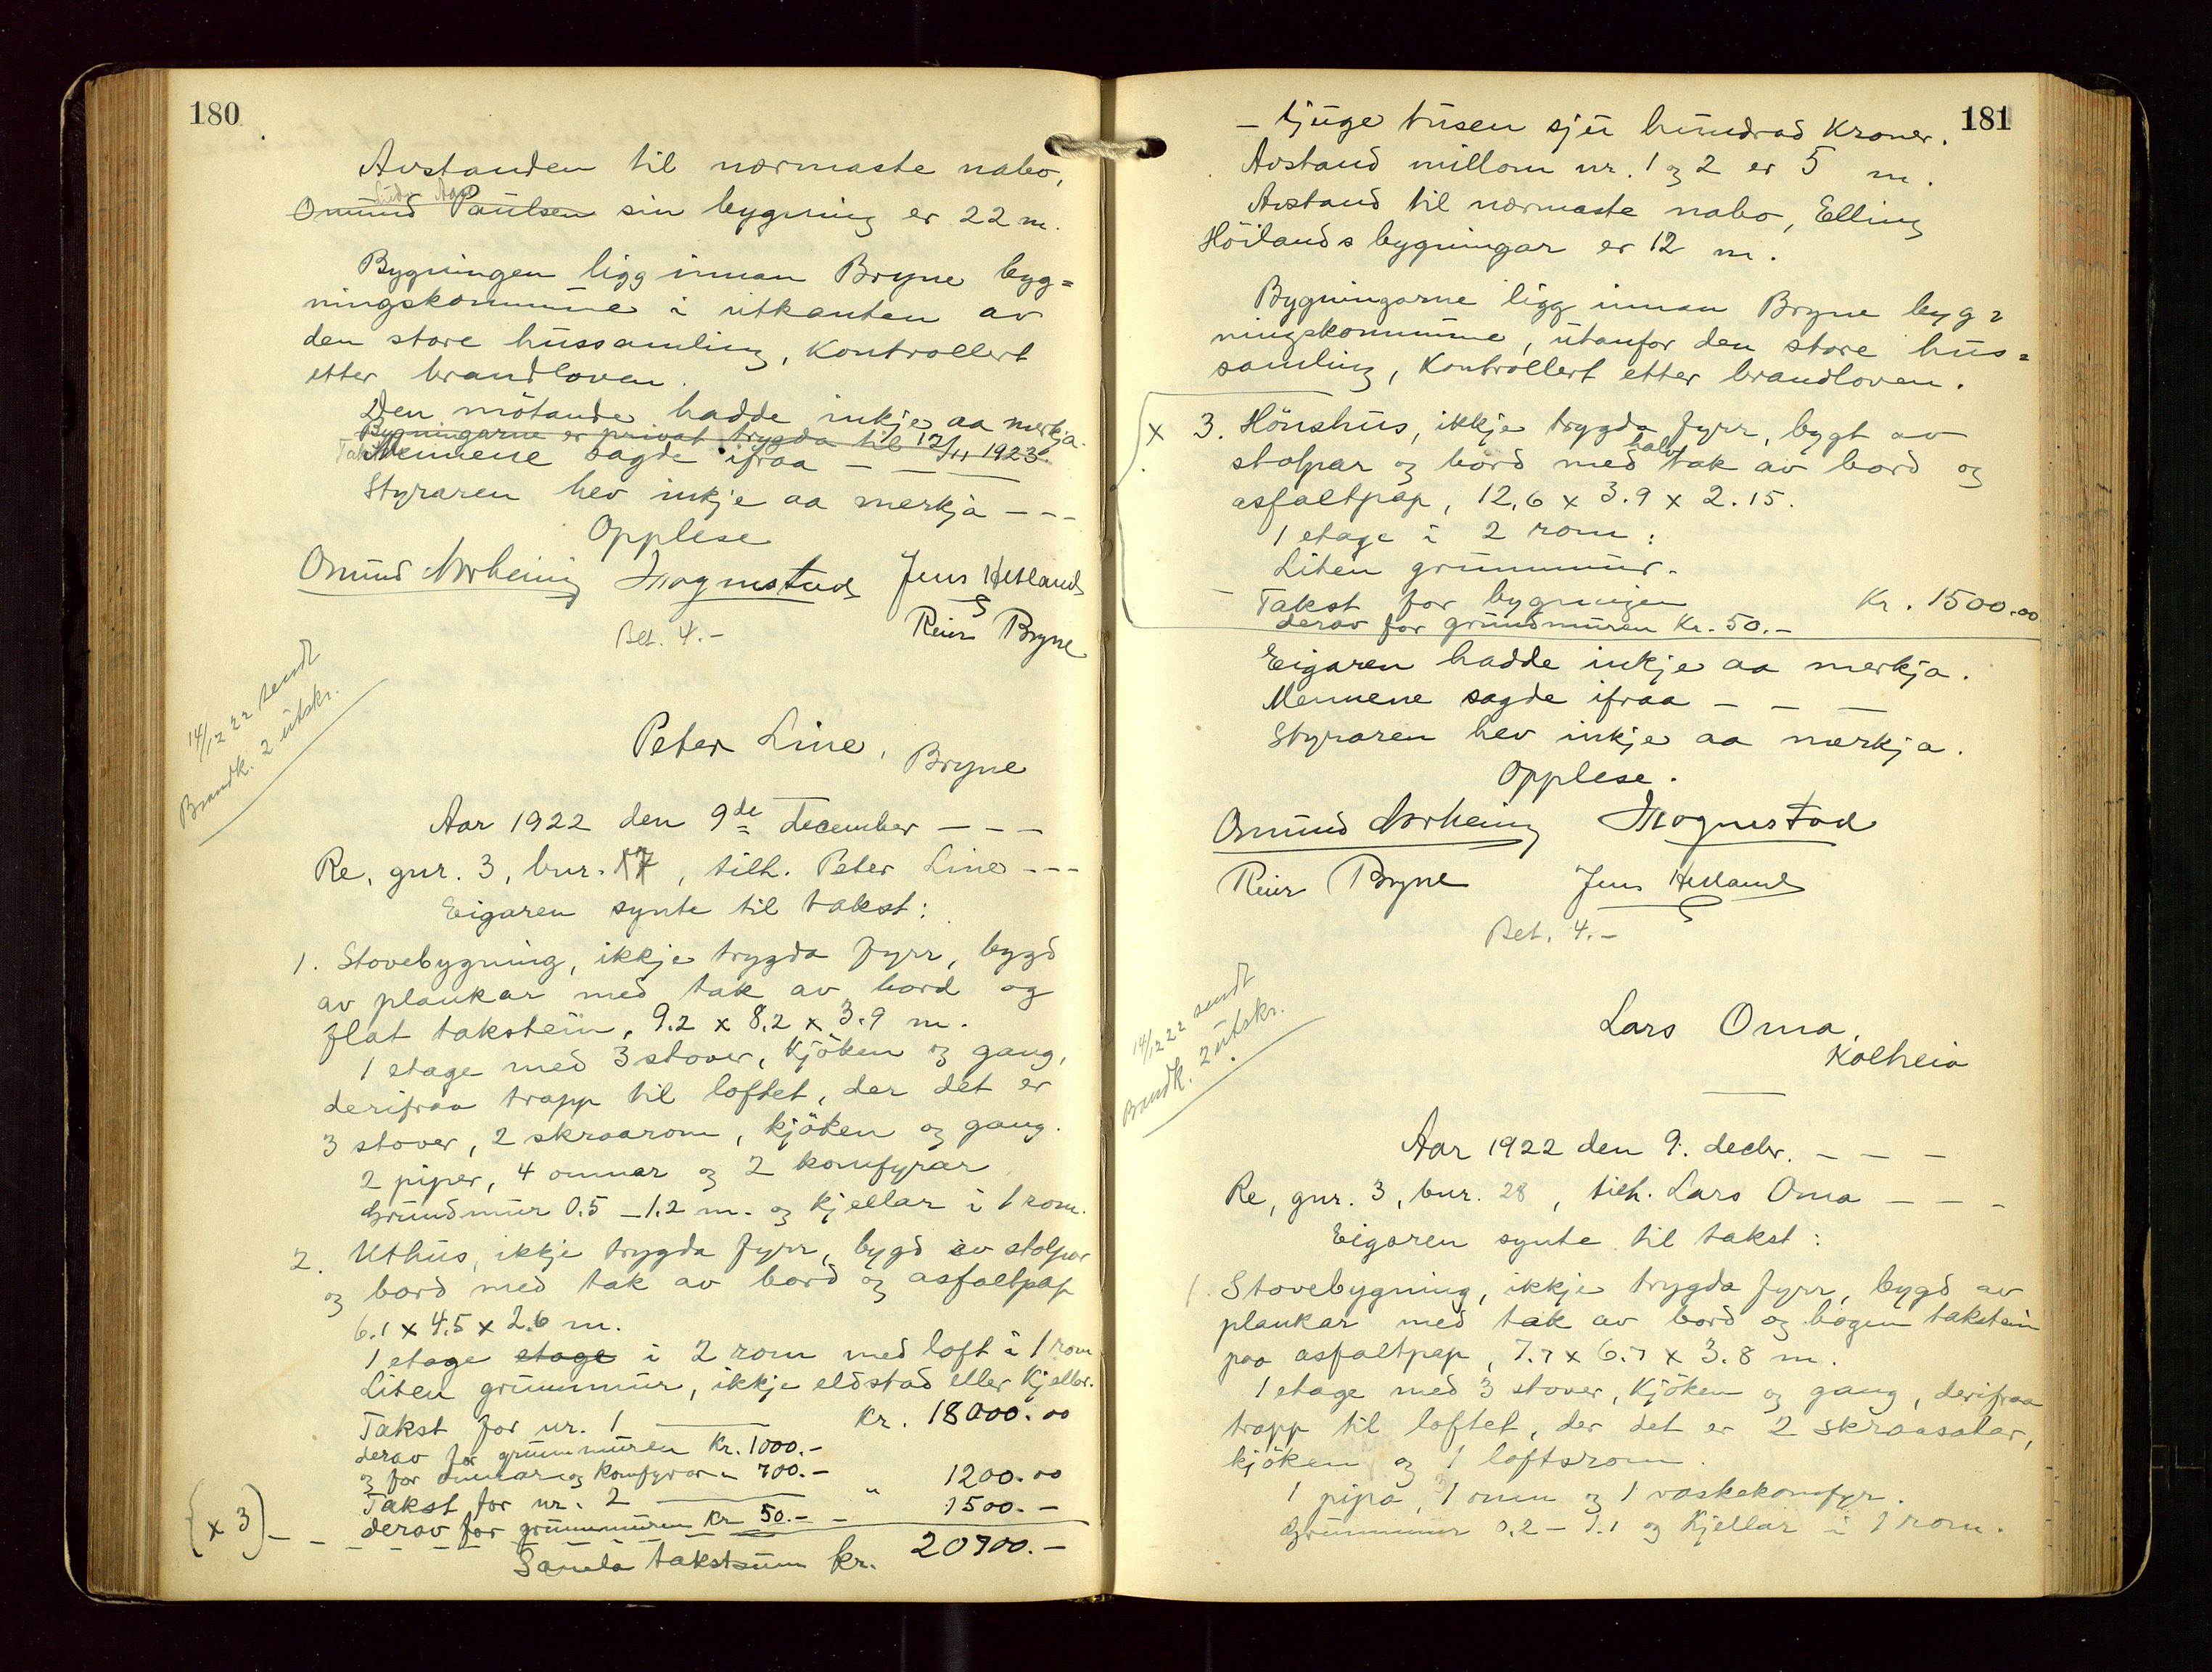 180
Avstanden til nærmaste nabo,
Omund Paulsen sin bygning er 22 m.
Bygningen ligg innan Bryne byg=
ningskommune i utkanten av
den store hussamling, Kontrollert
etter brandloven.
Den mötande hadde inkje aa merkja.
Bygningarne er privat trygda til 12/11 1923.
Mennene sagde ifraa — —
Styraren hev inkje aa merkja – – –
Opplese
Omund Norheim Jens Hetland
Reier Bryne
Bet. 4.–
14/12 22 sendt
Brandk. 2 utskr.
Peter Line,
Bryne
Aar 1922 den 9de december – – –
Re, gnr. 3, bnr. 17, tilh. Peter Line – – –
Eigaren synte til takst:
1. Stovebygning, ikkje trygda fyrr, bygd
av plankar med tak av bord og
flat takstein, 9.2 x 8.2 x 3.9 m.
1 etage med 3 stover, kjöken og gang,
derifraa trapp til loftet, der det er
3 stover, 2 skraarom, kjöken og gang.
2 piper, 4 omnar og 2 komfyrar
Grundmur 0.5 – 1.2 m. og kjellar i 1 rom.
2. Uthus, ikkje trygda fyrr, bygd av stolpar
og bord med tak av bord og asfaltpap
6.1 x 4.5 x 2.6 m.
1 etage etage i 2 rom med loft i 1 rom
Liten grunnmur, ikkje eldstad eller kjellar.
Takst for nr. 1 — Kr. 18000.00
derav for grunnmuren Kr. 1000.–
og for omnar og komfyrar " 700.–
Takst for nr. 2 — " 1200.00
derav for grunnmuren Kr 50.– – 1500.–
(x 3) –
Samla takstsum kr. 20700.–
181
– tjuge tusen sju hundrad Kroner.
Avstand millom nr. 1 og 2 er 5 m.
Avstand til nærmaste nabo, Elling
Höilands bygningar er 12 m.
Bygningarne ligg innan Bryne byg=
ningskommune, utanfor den store hus=
samling, Kontrollert etter brandloven.
x 3. Hönshus, ikkje trygda fyrr, bygt av
stolpar og bord med halv tak av bord og
asfaltpap, 12.6 x 3.9 x 2.15.
1 etage i 2 rom:
Liten grunnmur.
Takst for bygningen Kr. 1500.00
derav for grundmuren Kr. 50.–
Eigaren hadde inkje aa merkja.
Mennene sagde ifraa – – –
Styraren hev inkje aa merkja.
Opplese.
Omund Norheim
Reier Bryne Jens Hetland
Bet. 4.–
14/12 22 sendt
Brandk. 2 utskr.
Lars Oma,
Kolheia
Aar 1922 den 9. decbr. – – –
Re, gnr. 3, bnr. 28, tilh. Lars Oma – – –
Eigaren synte til takst:
1. Stovebygning, ikkje trygda fyrr, bygd av
plankar med tak av bord og bogen takstein
paa asfaltpap, 7.7 x 6.7 x 3.8 m.
1 etage med 3 stover, kjöken og gang, derifraa
trapp til loftet, der det er 2 skraasalar,
kjöken og 1 loftsrom.
1 pipa, 1 omn og 1 vaskekomfyr.
Grunnmur 0.2 – 1.1 og kjellar i 1 rom.